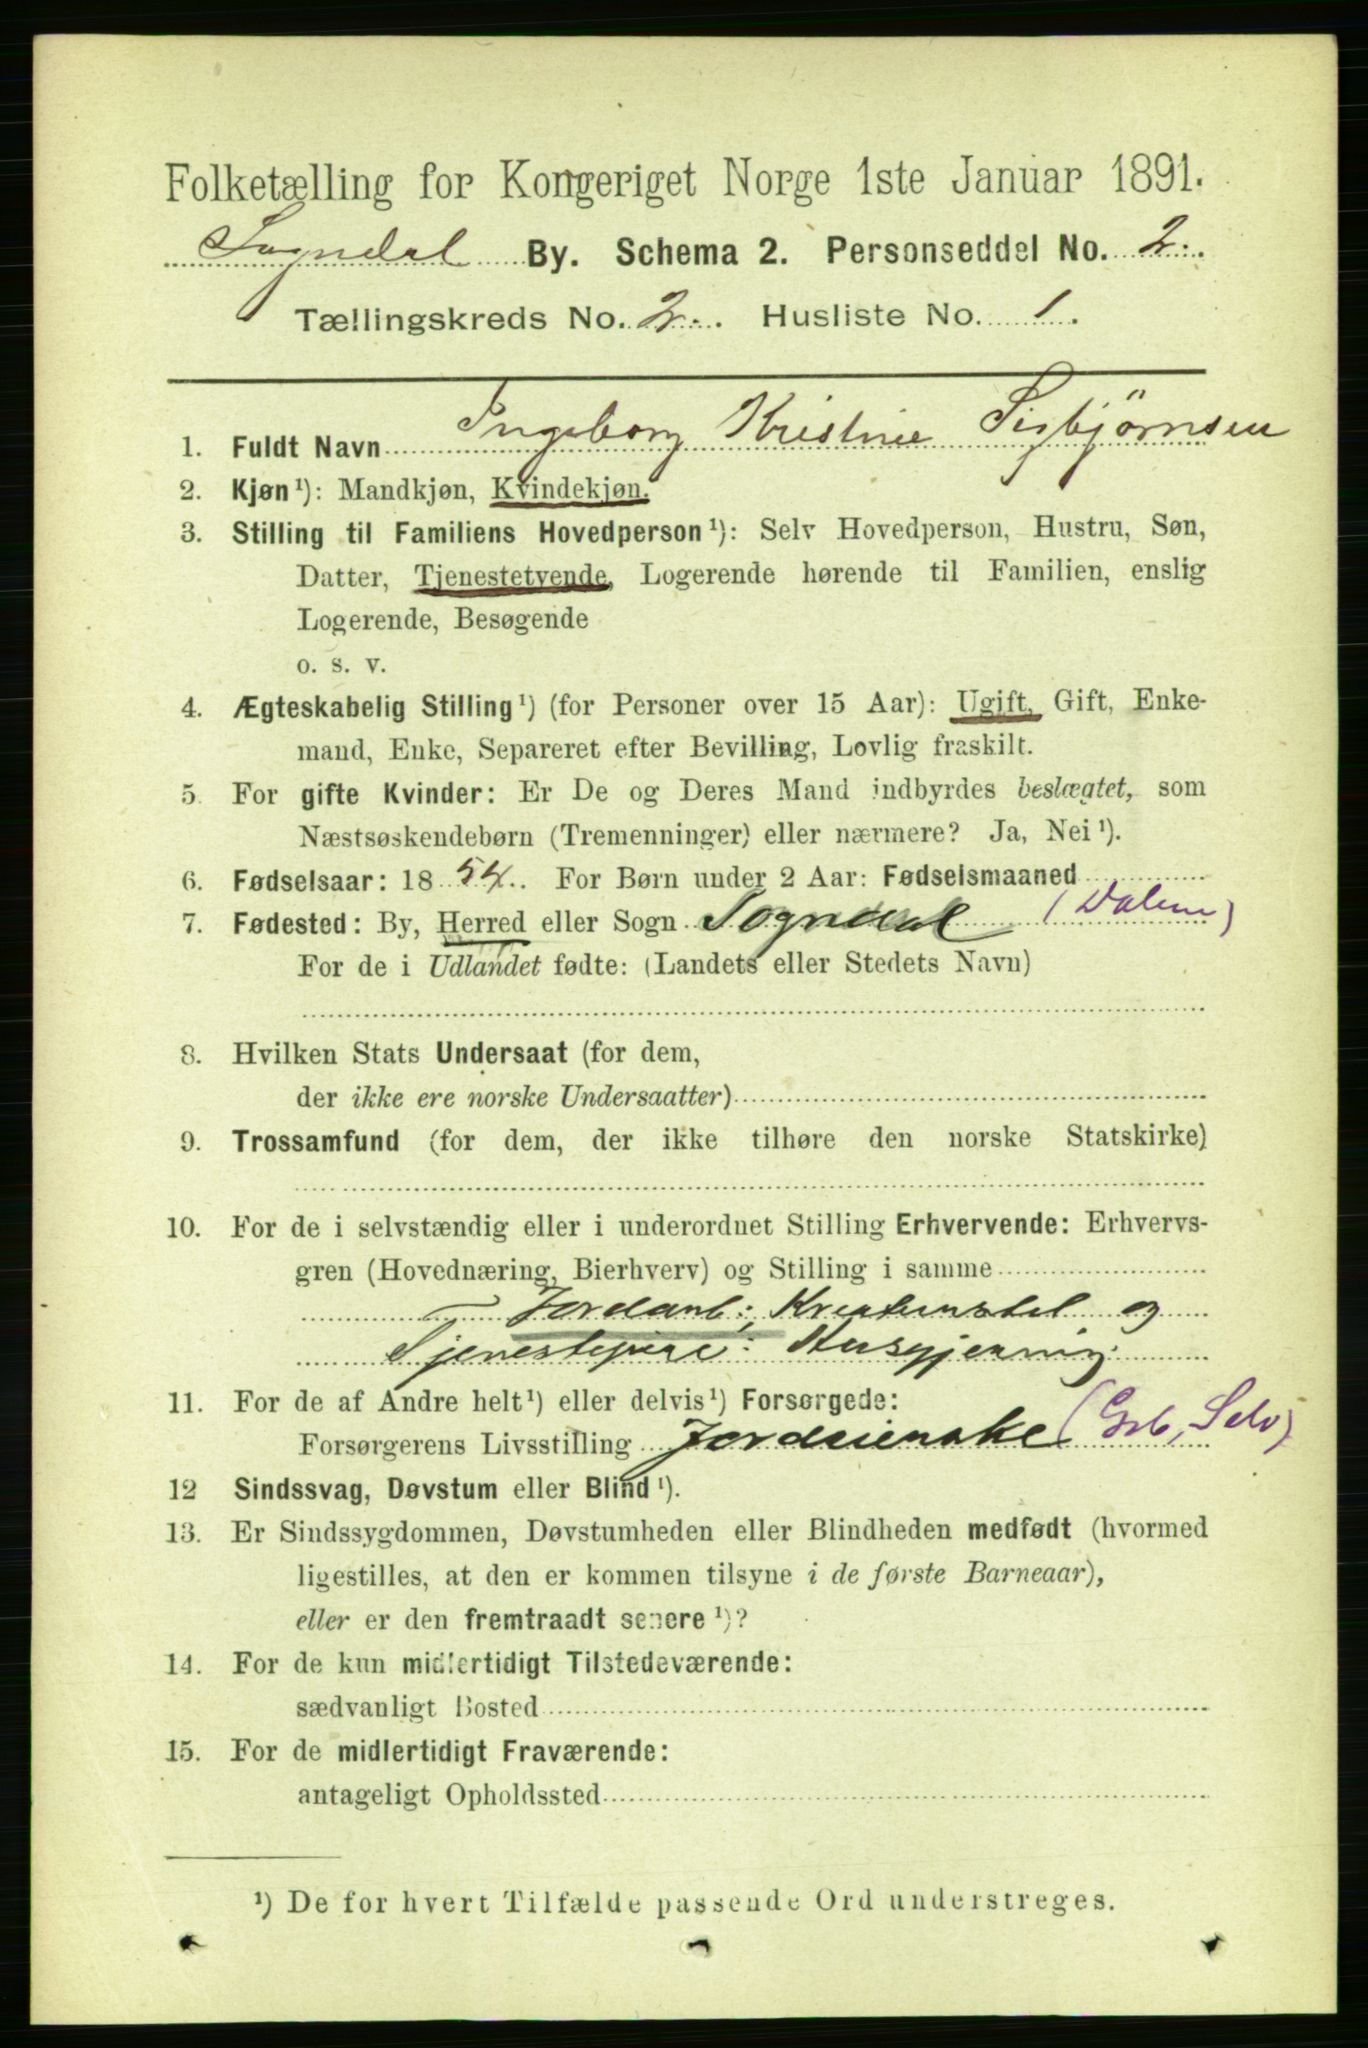 Folketælling for Kongeriget Norge 1ste Januar 1891.
Sogndal By. Schema 2. Personseddel No. 2.
Tællingskreds No. 2. Husliste No. 1.
1. Fuldt Navn Ingeborg Kristine Sigbjørnsen
2. Kjøn ¹): Mandkjøn, Kvindekjøn.
3. Stilling til Familiens Hovedperson ¹): Selv Hovedperson, Hustru, Søn,
Datter, Tjenestetyende, Logerende hørende til Familien, enslig
Logerende, Besøgende
o. s. v.
4. Ægteskabelig Stilling ¹) (for Personer over 15 Aar): Ugift, Gift, Enke-
mand, Enke, Separeret efter Bevilling, Lovlig fraskilt.
5. For gifte Kvinder: Er De og Deres Mand indbyrdes beslægtet, som
Næstsøskendebørn (Tremenninger) eller nærmere? Ja, Nei ¹).
6. Fødselsaar: 1854. For Børn under 2 Aar: Fødselsmaaned
7. Fødested: By, Herred eller Sogn Sogndal (Dalene)
For de i Udlandet fødte: (Landets eller Stedets Navn)
8. Hvilken Stats Undersaat (for dem,
der ikke ere norske Undersaatter)
9. Trossamfund (for dem, der ikke tilhøre den norske Statskirke)
10. For de i selvstændig eller i underordnet Stilling Erhvervende: Erhvervs-
gren (Hovednæring, Bierhverv) og Stilling i samme
Jordarb: Kreaturstel og
Tjenestepige: Husgjerning
11. For de af Andre helt ¹) eller delvis ¹) Forsørgede:
Forsørgerens Livsstilling (Grb, Selv)
12 Sindssvag, Døvstum eller Blind ¹).
13. Er Sindssygdommen, Døvstumheden eller Blindheden medfødt (hvormed
ligestilles, at den er kommen tilsyne i de første Barneaar),
eller er den fremtraadt senere ¹)?
14. For de kun midlertidigt Tilstedeværende:
sædvanligt Bosted
15. For de midlertidigt Fraværende:
antageligt Opholdssted
¹) De for hvert Tilfælde passende Ord understreges.